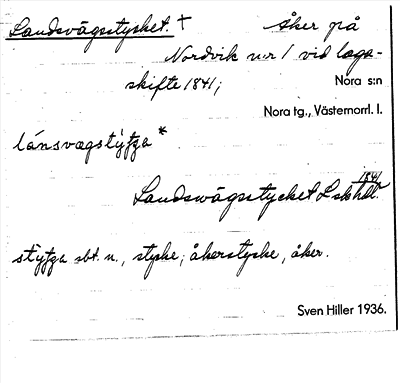 Landsvägsstycket. † åker på
Nordvik n:r 1 vid laga-
skifte 1841;
Nora s:n
Nora tg., Västernorrl. l.
lánsvagstýtga *
Landswägsstycket L skhdl. 1841
stýtga sbt. n., stycke; åkerstycke, åker.
Sven Hiller 1936.